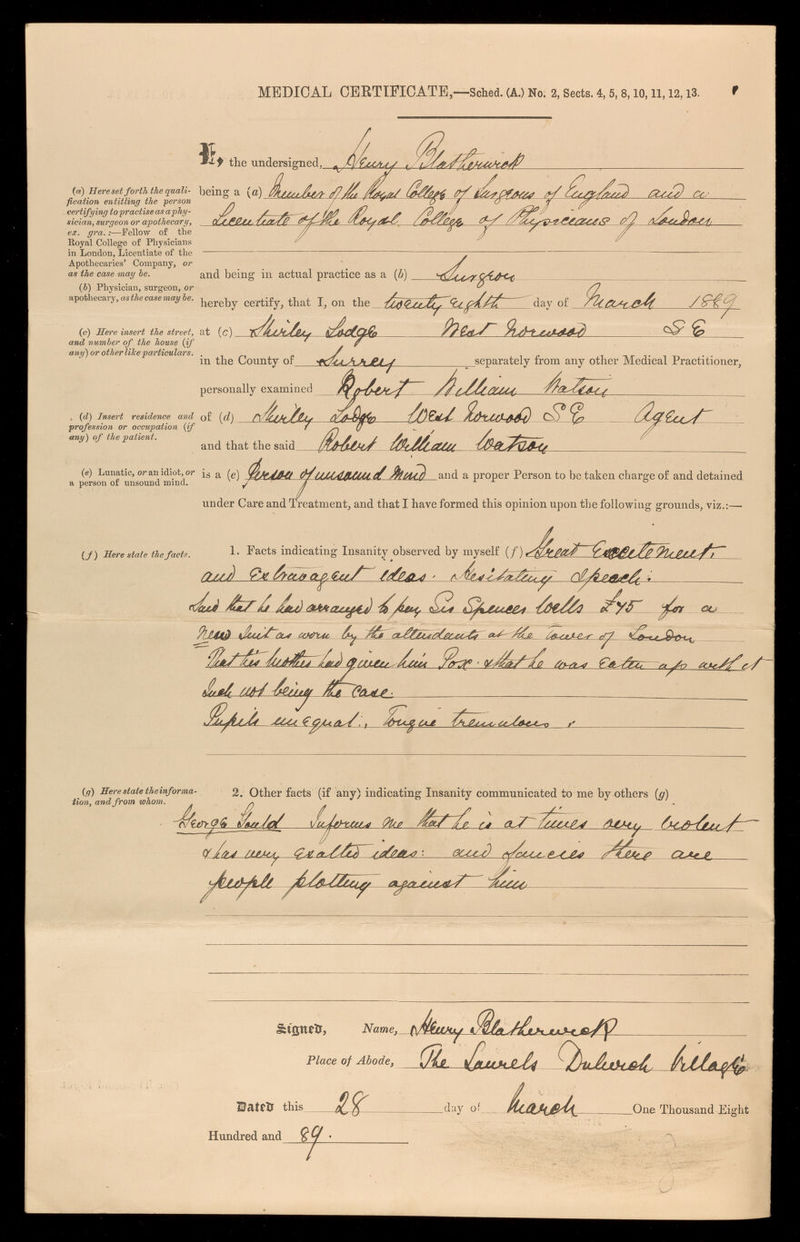 MEDICAL CERTIFICATE,—Sched. (A.) No. 2, Sects. 4, 5, 8, 10, 11, 12, 13.
I, the undersigned, Henry Blatherwick
(a) Here set forth the quali-
fication entitling the person
certifying to practise as a phy-
sician, surgeon or apothecary,
ex. gra.:—Fellow of the
Royal College of Physicians
in London, Licentiate of the
Apothecaries' Company, or
as the case may be.
being a (a) Member of the Royal College of Surgeons of England and a
Licentiate of the Royal College of Physicians of London
and being in actual practice as a (b) Surgeon
(b) Physician, surgeon, or
apothecary, as the case may be.
hereby certify, that I, on the twenty eighth day of March 1889
(c) Here insert the street,
and number of the house (if
any) or other like particulars.
at (c) Shirley Lodge West Norwood S E
in the County of Surrey separately from any other Medical Practitioner,
personally examined Robert William Watson
(d) Insert residence and
profession or occupation (if
any) of the patient.
of (d) Shirley Lodge West Norwood S E Agent
and that the said Robert William Watson
(e) Lunatic, or an idiot, or
a person of unsound mind.
is a (e) Person of unsound Mind and a proper Person to be taken charge of and detained
under Care and Treatment, and that I have formed this opinion upon the following grounds, viz.:—
(f) Here state the facts.
1. Facts indicating Insanity observed by myself (f) Great Excitement,
and Extravagent ideas. Hesitating Speech.
Said that he had arranged to pay Sir Spencer Wells £45 for a
new Suit as worn by the attendants at the Tower of London
That his brother had given him Pox & that he was Eaten up with it
Such not being the Case.
Pupils unequal, Tongue tremulous.
(g) Here state the informa-
tion, and from whom.
2. Other facts (if any) indicating Insanity communicated to me by others (g)
George Gould Informs me that he is at times very violent
& has very Exalted ideas: and fancies there are
people plotting against him
Signed, Name, Henry Blatherwick
Place of Abode, The Laurels Dulwich Village
Dated this 28 day of March One Thousand Eight
Hundred and 89.